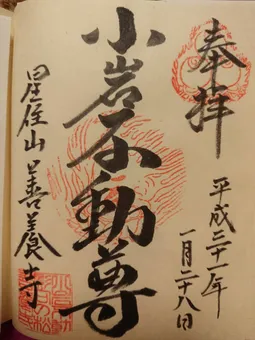 奉拝
平成三十一年
一月二十八日
小岩不動尊
星住山善養寺